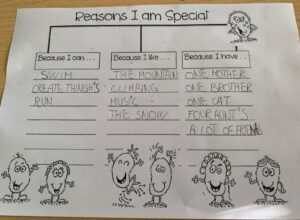 Reasons I am Special
Because I can . . .
SWIM
CREATE THINGH'S
RUN
Because I like . . .
THE MOUNTAIN
CLIMBING
MUSIC
THE SNOW
Because I have . .
ONE MOTHER
ONE BROTHER
ONE CAT
FOUR AUNT'S
A LOT OF FRIENDS